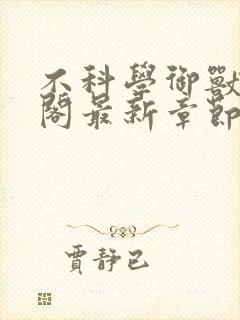 不科學御獸
閣最新章節
賈靜已